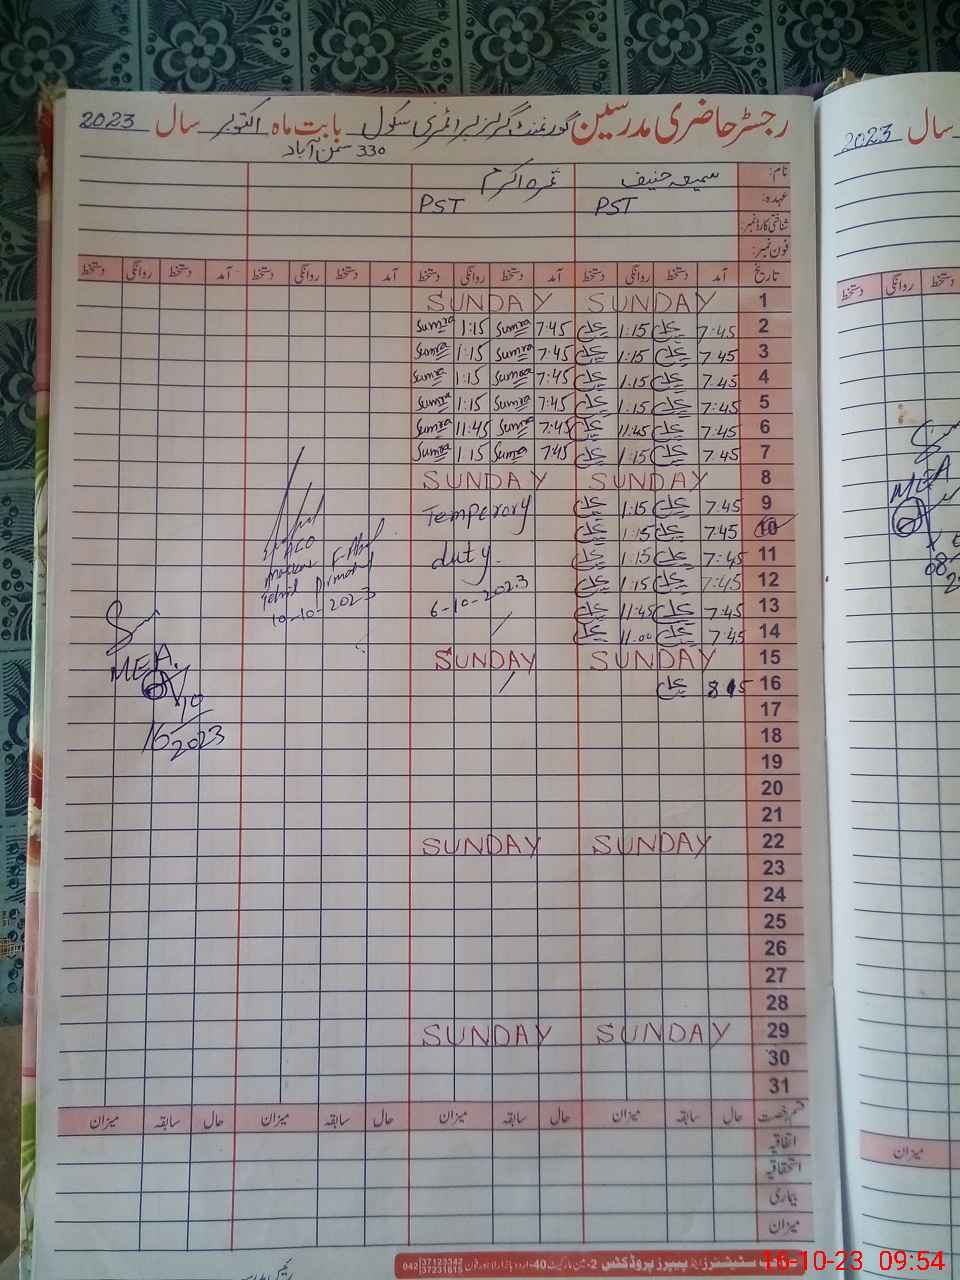 رجسٹر حاضری مدرسین گورنمنٹ گرلز پرائمری سکول بابت ماہ اکتوبر سال 2023
330 سمن آباد
نام: سمیعہ حنیف ثمرہ اکرم
عہدہ: PST PST
شناختی کارڈ نمبر:
فون نمبر:
تاریخ آمد دستخط روانگی دستخط آمد دستخط روانگی دستخط آمد دستخط روانگی دستخط آمد دستخط روانگی دستخط
1 SUNDAY SUNDAY
2 7:45 1:15 7:45 Sumra 1:15 Sumra
3 7:45 1:15 7:45 Sumra 1:15 Sumra
4 7:45 1:15 7:45 Sumra 1:15 Sumra
5 7:45 1:15 7:45 Sumra 1:15 Sumra
6 7:45 11:45 7:45 Sumra 11:45 Sumra
7 7:45 1:15 7:45 Sumra 1:15 Sumra
8 SUNDAY SUNDAY
9 7:45 1:15 Temperory
10 7:45 1:15
11 7:45 1:15 duty
12 7:45 1:15
13 7:45 11:45 6-10-2023
14 7:45 11:00
15 SUNDAY SUNDAY
16 8:15
17
18
19
20
21
22 SUNDAY SUNDAY
23
24
25
26
27
28
29 SUNDAY SUNDAY
30
31
10-10-2023
MEA
16/10
2023
قسم رخصت حال سابقہ میزان حال سابقہ میزان حال سابقہ میزان حال سابقہ میزان
اتفاقیہ
استحقاقیہ
بیماری
میزان
سٹیشنرز اینڈ پیپرز پروڈکٹس
042 37123342
37231615
سال 2023
دستخط روانگی دستخط
MEA
میزان
16-10-23 09:54